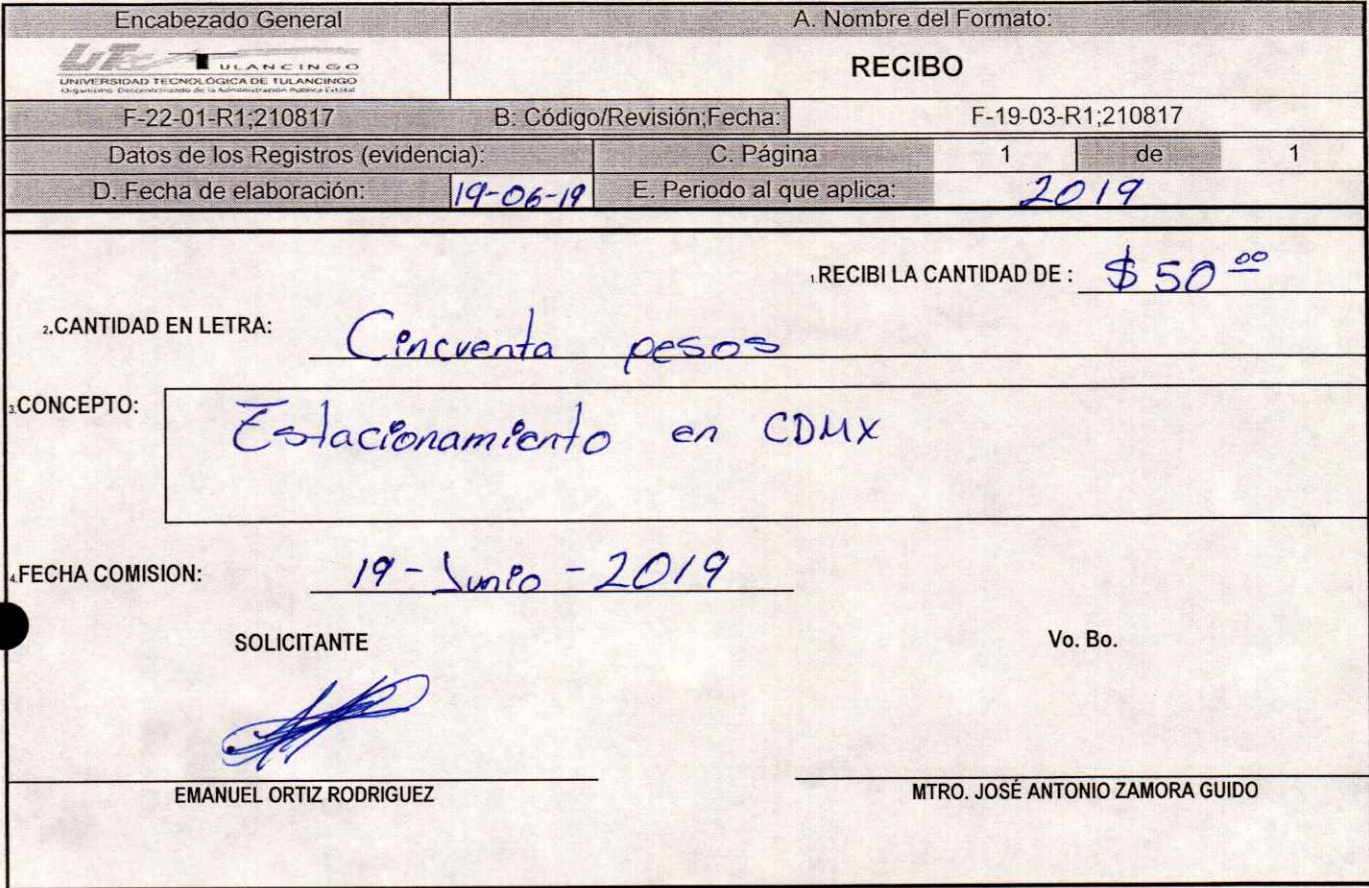 Encabezado General
A. Nombre del Formato:
UTec TULANCINGO
UNIVERSIDAD TECNOLÓGICA DE TULANCINGO
Organismo Descentralizado de la Administración Pública Estatal
RECIBO
F-22-01-R1;210817 B: Código/Revisión;Fecha: F-19-03-R1;210817
Datos de los Registros (evidencia): C. Página 1 de 1
D. Fecha de elaboración: 19-06-19 E. Periodo al que aplica: 2019
1.RECIBI LA CANTIDAD DE : $ 50 00
2.CANTIDAD EN LETRA: Cincuenta pesos
3.CONCEPTO: Estacionamiento en CDMX
4.FECHA COMISION: 19-Junio-2019
SOLICITANTE Vo. Bo.
EMANUEL ORTIZ RODRIGUEZ MTRO. JOSÉ ANTONIO ZAMORA GUIDO